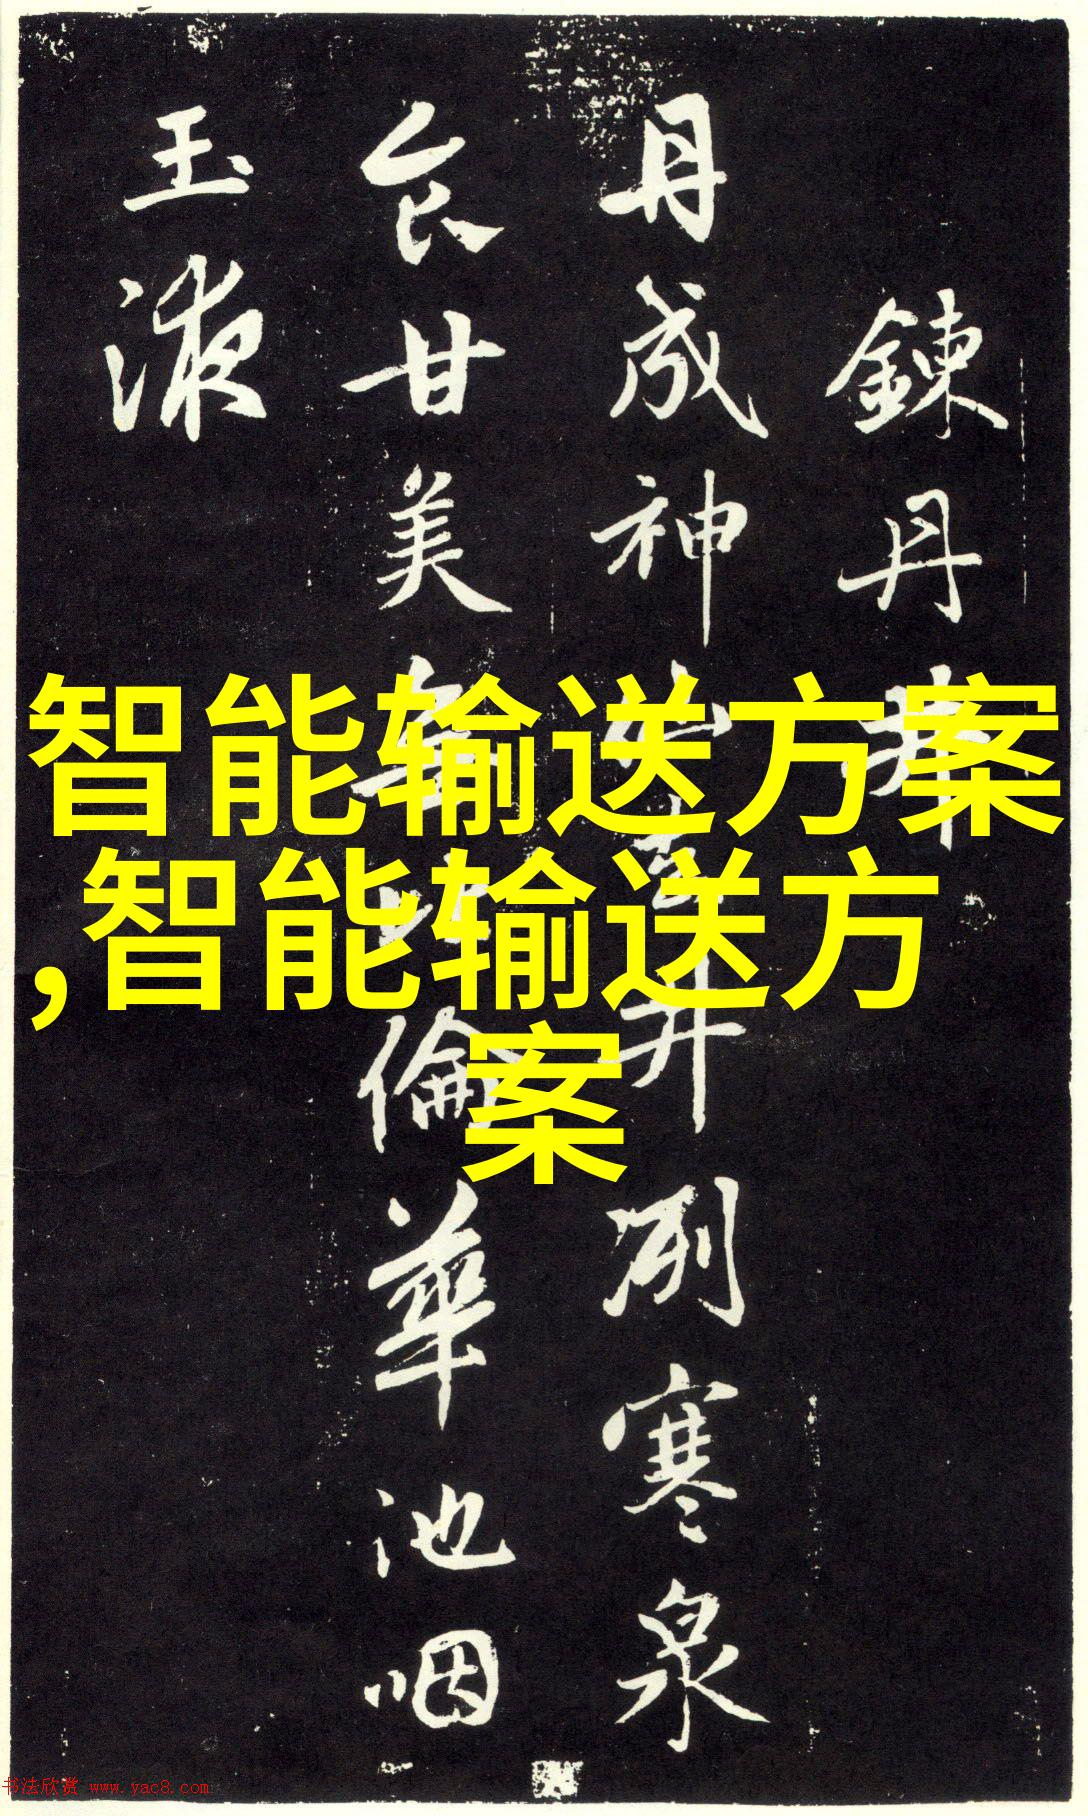 鍊丹井
丹成神仙去井冽寒泉
食甘美無比倫華池咽
玉液
智能输送方案
,智能输送方
案
书法欣赏 www.yac8.com